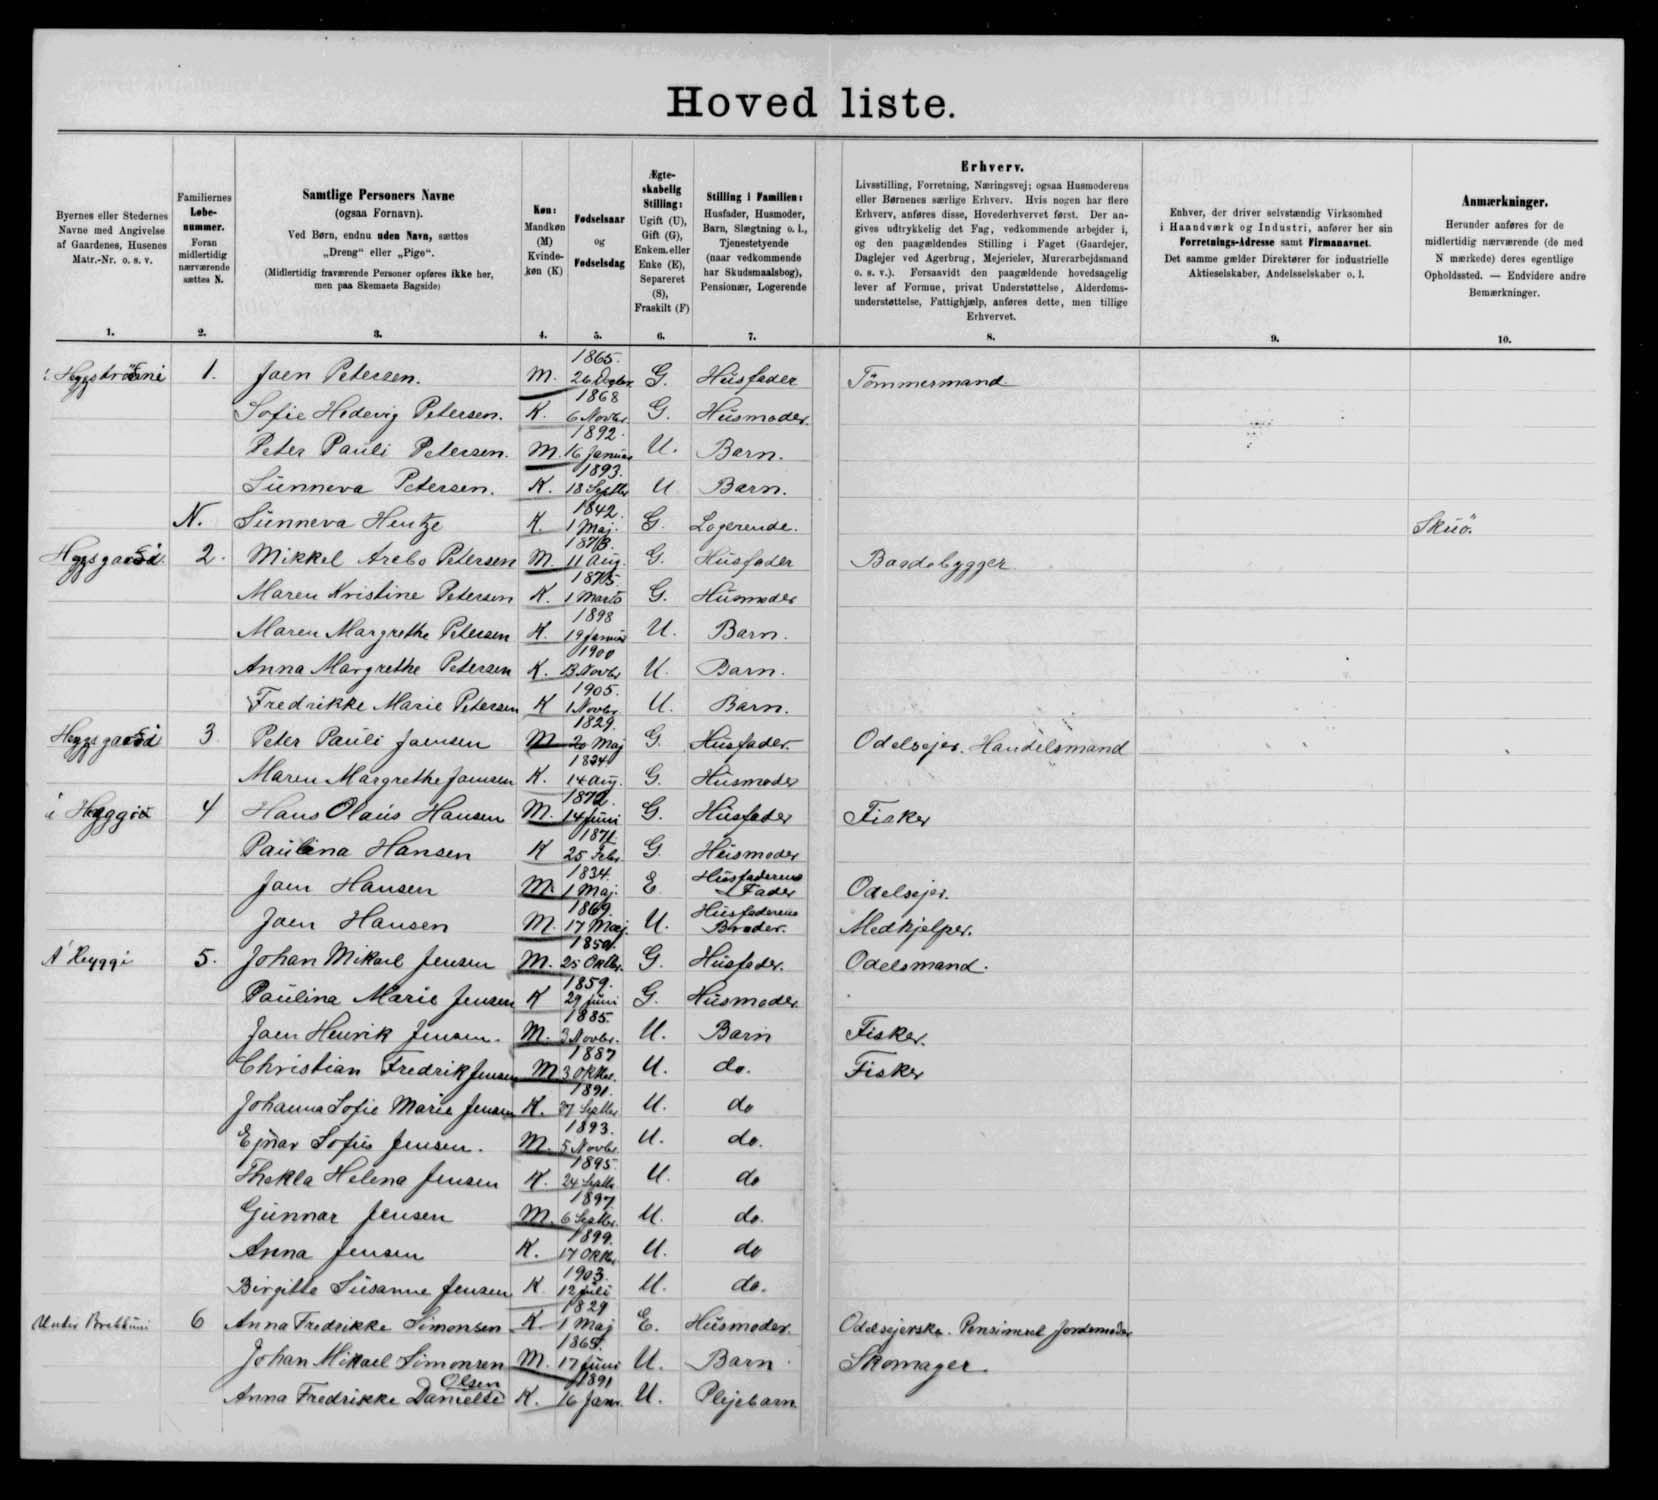 Hovedliste.
Byernes eller Stedernes Navne med Angivelse af Gaardenes, Husenes Matr.-Nr. o. s. v.
Familiernes Løbe-nummer. Foran midlertidig nærværende sættes N.
Samtlige Personers Navne (ogsaa Fornavn). Ved Børn, endnu uden Navn, sættes „Dreng“ eller „Pige“. (Midlertidig fraværende Personer opføres ikke her, men paa Skemaets Bagside)
Køn: Mandkøn (M) Kvinde-køn (K)
Fødselsaar og Fødselsdag
Ægte-skabelig Stilling: Ugift (U), Gift (G), Enkem. eller Enke (E), Separeret (S), Fraskilt (F)
Stilling i Familien: Husfader, Husmoder, Barn, Slægtning o. l., Tjenestetyende (naar vedkommende har Skudsmaalsbog), Pensionær, Logerende
Erhverv. Livsstilling, Forretning, Næringsvej; ogsaa Husmoderens eller Børnenes særlige Erhverv. Hvis nogen har flere Erhverv, anføres disse, Hovederhvervet først. Der an-gives udtrykkelig det Fag, vedkommende arbejder i, og den paagældendes Stilling i Faget (Gaardejer, Daglejer ved Agerbrug, Mejerielev, Murerarbejdsmand o. s. v.). Forsaavidt den paagældende hovedsagelig lever af Formue, privat Understøttelse, Alderdoms-understøttelse, Fattighjælp, anføres dette, men tillige Erhvervet.
Enhver, der driver selvstændig Virksomhed i Haandværk og Industri, anfører her sin Forretnings-Adresse samt Firmanavnet. Det samme gælder Direktører for industrielle Aktieselskaber, Andelsselskaber o. l.
Anmærkninger. Herunder anføres for de midlertidig nærværende (de med N mærkede) deres egentlige Opholdssted. — Endvidere andre Bemærkninger.
1. 2. 3. 4. 5. 6. 7. 8. 9. 10.
1. Joen Petersen. M. 1865. 26 Decbr. G. Husfader Tömmermand
Sofie Hedevig Petersen. K. 1868 6 Novbr. G. Husmoder.
Peter Pauli Petersen. M. 1892. 16 Januar U. Barn.
Sunneva Petersen. K. 1893. 18 Septbr U Barn.
N. Sunneva Hentze K. 1842. 1 Maj. G. Logerende. Skuö.
2. Mikkel Arebo Petersen M. 11 Aug. G. Husfader Baadebygger
Maren Kristine Petersen K. 1875. 1 Marts G. Husmoder
Maren Margrethe Petersen K. 1898 19 Januar U. Barn.
Anna Margrethe Petersen K. 1900 13 Novbr U. Barn.
Fredrikke Marie Petersen K 1905. 1 Novbr. U. Barn.
3 Peter Pauli Joensen M 1829. 20 Maj G. Husfader. Odelsejer. Handelsmand
Maren Margrethe Joensen K. 1834 14 Aug. G. Husmoder
4 Hans Olaus Hansen M. 1872. 14 Juni G. Husfader Fisker
Paulina Hansen K 1871. 25 Febr. G. Husmoder
Joen Hansen M. 1834. 1 Maj. E. Husfaderens Fader Odelsejer.
Joen Hansen M. 1869. 17 Maj. U. Husfaderens Broder. Medhjelper.
Á Heyggi 5. Johan Mikael Jensen M. 25 Oktbr. G. Husfader. Odelsmand.
Paulina Marie Jensen K 1859. 29 Juni G. Husmoder.
Joen Henrik Jensen. M. 1885. 3 Novbr. U. Barn Fisker.
Christian Fredrik Jensen M 1887 3 Oktbr. U. do. Fisker
Johanna Sofie Marie Jensen K. 1891. 27 Septbr U. do
Ejnar Sofus Jensen. M. 1893. 5 Novbr. U. do.
Thekla Helena Jensen K. 1895. 24 Septbr U. do
Gunnar Jensen M. 1897. 6 Septbr. U. do.
Anna Jensen K. 1899. 17 Oktbr. U. do
Birgitte Susanne Jensen K. 1903. 12 Juli U. do.
6 Anna Fredrikke Simonsen K 1829 1 Maj E. Husmoder. Odelsejerske. Jordemoder
Johan Mikael Simonsen M. 17 Juni U. Barn Skomager
Anna Fredrikke Danielle Olsen K. 1891 16 Janr. U. Plejebarn